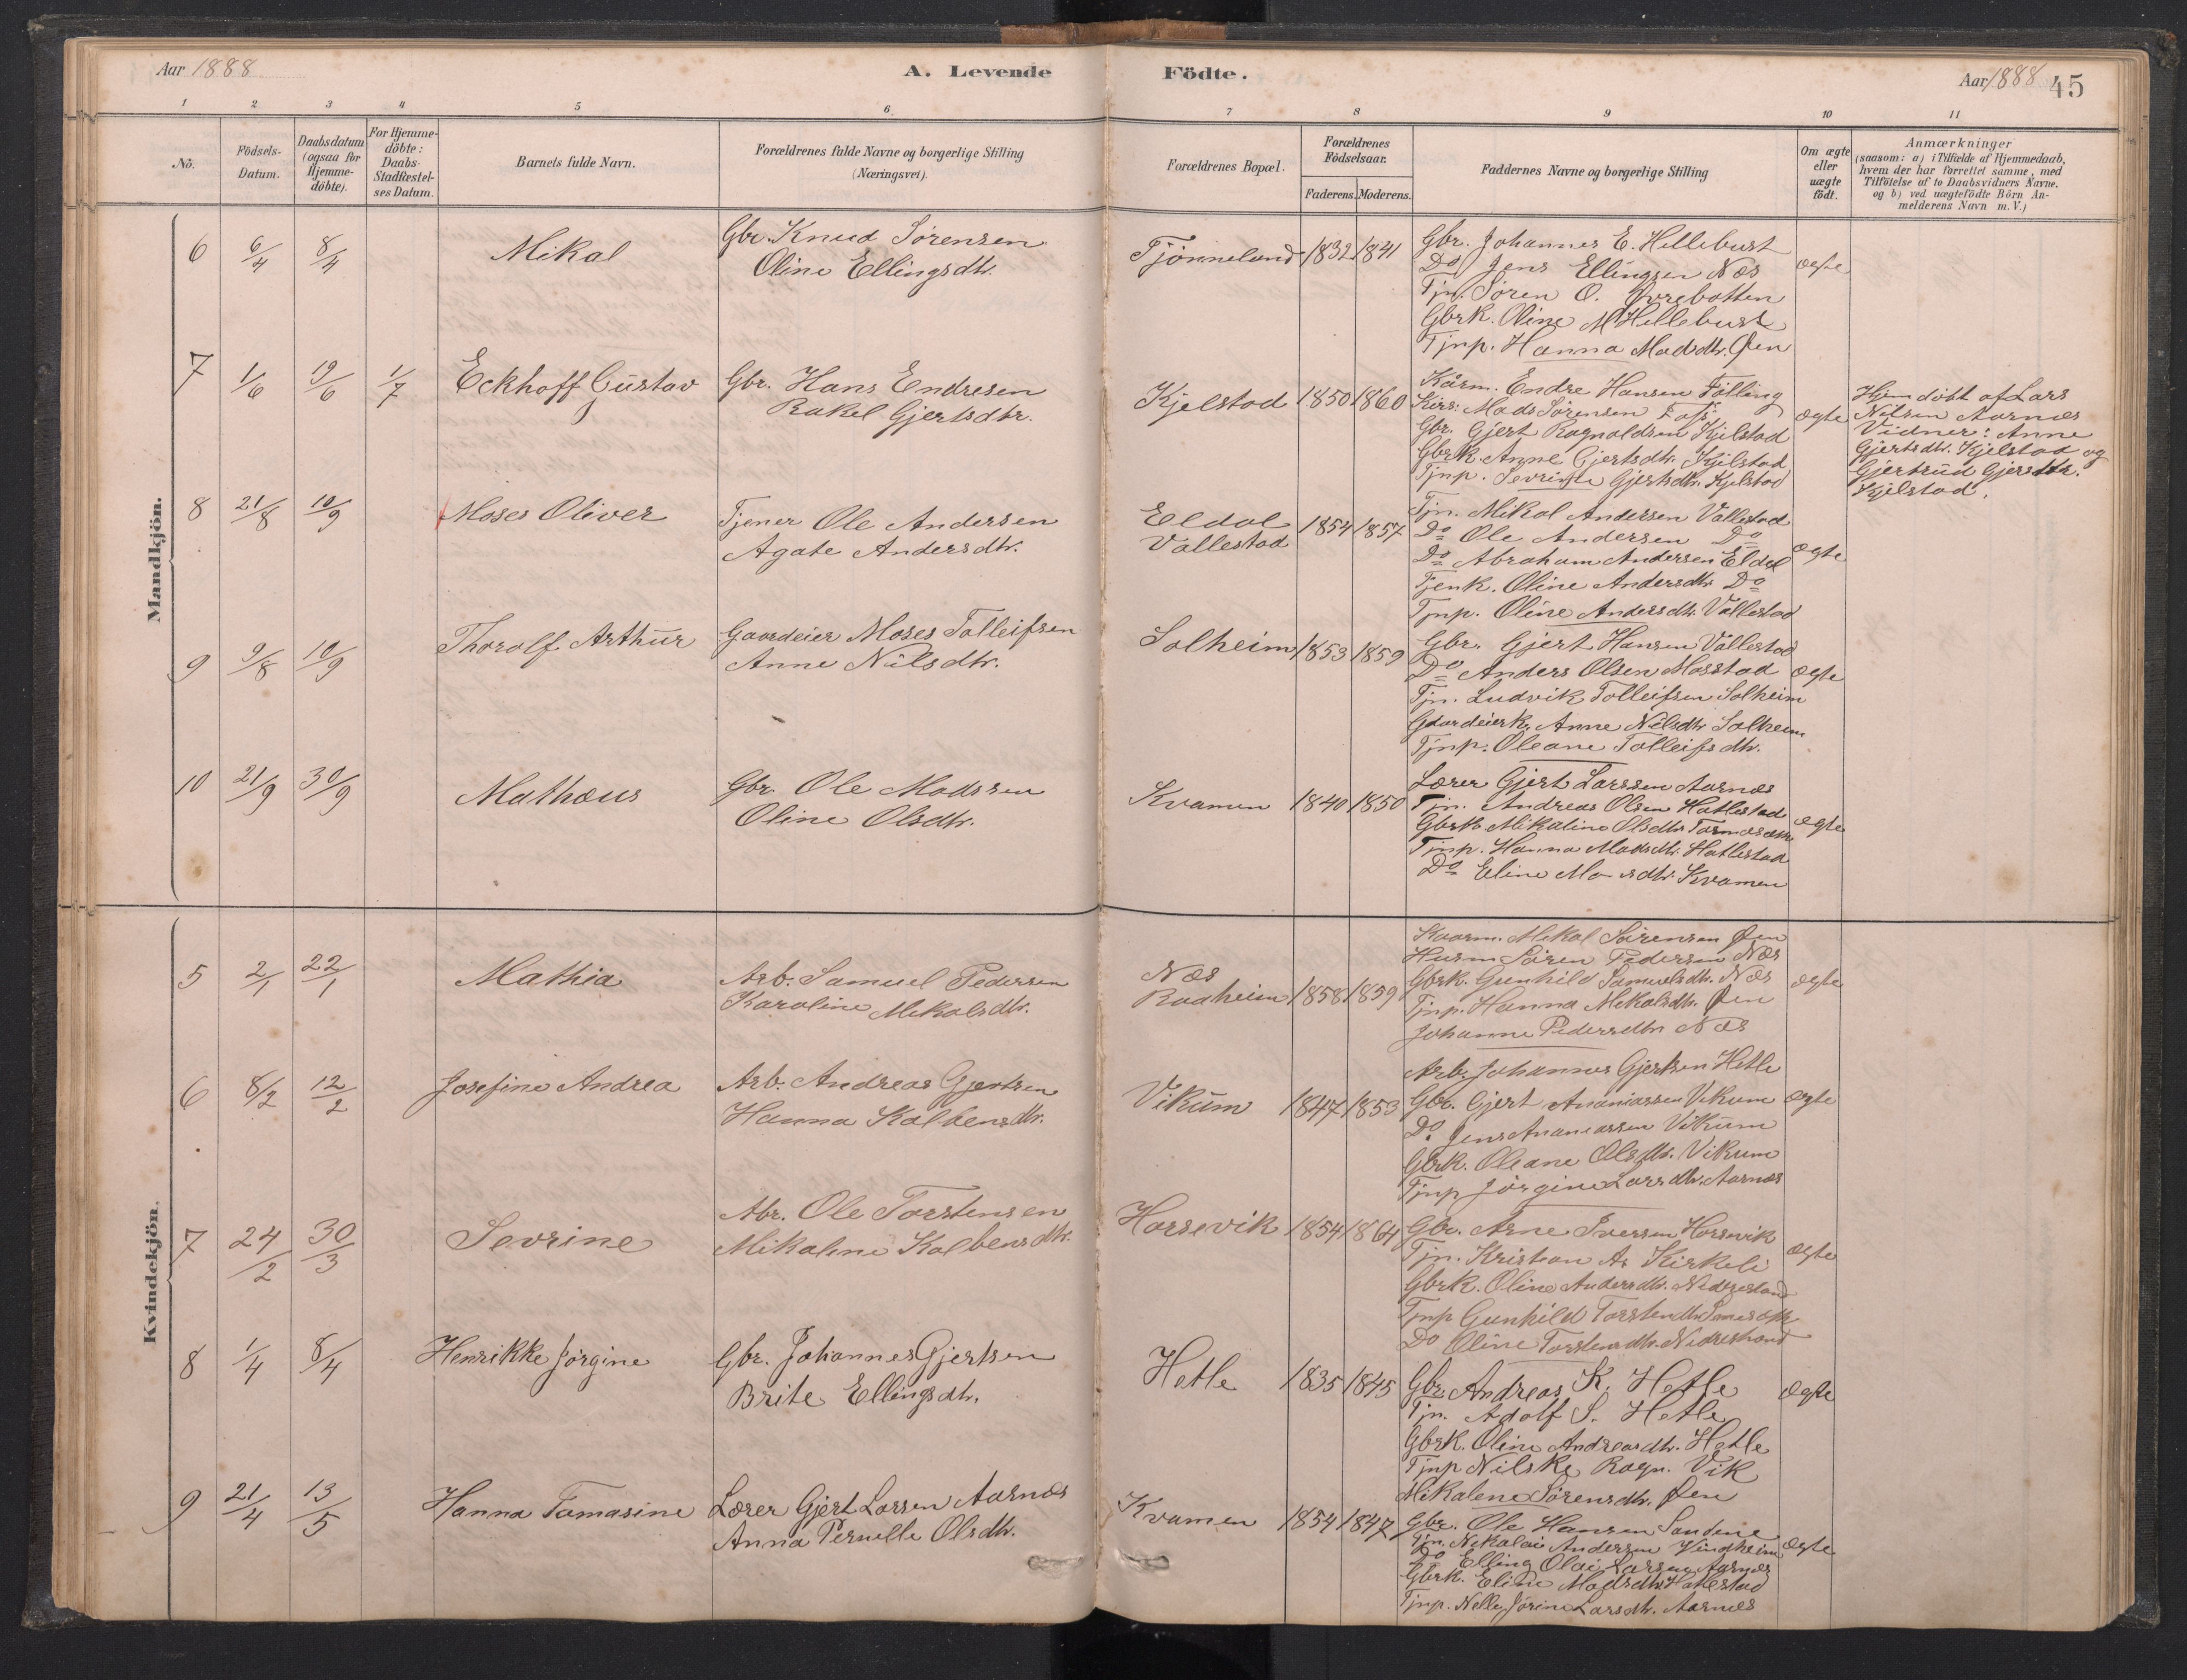 Aar 1888
A. Levende Födte.
Aar 1888 45
1 2 3 4 5 6 7 8 9 10 11
Nö.
Födsels-Datum.
Daabsdatum (ogsaa for Hjemme-döbte).
For Hjemme-döbte: Daabs-Stadfæstel-ses Datum.
Barnets fulde Navn.
Forældrenes fulde Navne og borgerlige Stilling (Næringsvei).
Forældrenes Bopæl.
Forældrenes Födselsaar.
Faderens. Moderens.
Faddernes Navne og borgerlige Stilling
Om ægte eller uægte födt.
Anmærkninger
(saasom: a) i Tilfælde af Hjemmedaab,
hvem der har forrettet samme, med
Tilföielse af to Daabsvidners Navne.
og b) ved uægtefödte Börn An-
melderens Navn m. V.)
Mandkjön.
6 6/4 8/4 Mikal
Gbr. Knud Sørensen
Oline Ellingsdtr.
Tjønneland 1832 1841
Gbr. Johannes E. Hellebust
Do Jens Ellingsen Næs
Tjn. Søren O. Øvrebotten
Gbrk. Oline M Hellebust
Tjnp. Hanna Madsdtr. Øen
ægte
7 1/6 19/6 1/7 Eckhoff Gustav
Gbr. Hans Endresen
Rakel Gjertsdtr.
Kjelstad 1850 1860
Kårm. Endre Hansen Følling
Kirs: Mads Sørensen
Gbr. Gjert Ragnaldsen Kjelstad
Gbrk. Anne Gjertsdtr. Kjelstad
Tjnp. Sevrine Gjertsdtr. Kjelstad
ægte
Hjemdöbt af Lars
Nilsen Aarnæs
Vidner: Anne
Gjertsdtr. Kjelstad og
Gjertrud Gjertsdtr.
Kjelstad.
8 21/8 10/9 Moses Oliver
Tjener Ole Andersen
Agate Andersdtr.
Eldal
Vallestad
1854 1857
Tjn. Mikal Andersen Vallestad
Do Ole Andersen Do
Do Abraham Andersen Eldal
Tjenk. Oline Andersdtr Do
Tjnp. Oline Andersdtr. Vallestad
ægte
9 9/8 10/9 Thorolf Arthur
Gaardeier Moses Tolleifsen
Anne Nilsdtr.
Solheim 1853 1859
Gbr. Gjert Hansen Vallestad
Do Anders Olsen Masstad
Tjn. Ludvik Tolleifsen Solheim
Gaardeierk. Anne Nilsdtr Solheim
Tjnp. Oleane Tolleifsdtr.
ægte
10 21/9 30/9 Mathæus
Gbr. Ole Madssen
Oline Olsdtr.
Kvamen 1840 1850
Lærer Gjert Larssen Aarnæs
Tjn. Andreas Olsen Hatlestad
Gbrk. Mikaline Olsdtr
Tjnp. Hanna Madsdtr. Hatlestad
Do Eline Kvamen
ægte
Kvindekjön.
5 2/1 22/1 Mathia
Arb. Samuel Pedersen
Karoline Mikalsdtr.
Næs
Raaheim
1858 1859
Kaarm. Mikal Sørensen Øen
Husm Sören Pedersen Næs
Gbrk. Gunhild Samuelsdtr. Næs
Tjnp. Hanna Mikalsdtr. Øen
Johanne Pedersdtr Næs
ægte
6 8/2 12/2 Josefine Andrea
Arb. Andreas Gjertsen
Hanna Kolbensdtr.
Vikum 1847 1853
Arb. Johannes Gjertsen Hetle
Gbr. Gjert Ananiassen Vikum
Do. Jens Ananiassen Vikum
Gbrk. Oleane Olsdtr. Vikum
Tjnp Jørgine Larsdtr. Aarnæs
ægte
7 24/2 30/3 Sevrine
Abr. Ole Torstensen
Mikaline Kolbensdtr.
Horsevik 1854 1864
Gbr. Arne Iversen Horsevik
Tjn. Kristian A. Kirkeli
Gbrk. Oline Andersdtr. Nedrestand
Tjnp Gunhild Torstendtr
Do Oline Torstensdtr. Nidrestrand
ægte
8 1/4 8/4 Henrikke Jørgine
Gbr. Johannes Gjertsen
Brite Ellingsdtr.
Hetle 1835 1845
Gbr. Andreas K. Hetle
Tjn. Adolf S. Hetle
Gbrk. Oline Andreasdtr. Hetle
Tjnp Nilske Ragn. Vik
Mikalene Sørensdtr. Øen
ægte
9 21/4 13/5 Hanna Tomasine
Lærer Gjert Larsen Aarnæs
Anna Pernille Olsdtr.
Kvamen 1854 1847
Gbr. Ole Hansen Sandene
Tjn. Nikolai Andersen Vindheim
Do Elling Olai Larsen Aarnæs
Gbrk. Eline Madsdtr Hatlestad
Tjnp. Nelle Jørine Larsdtr. Aarnæs
ægte